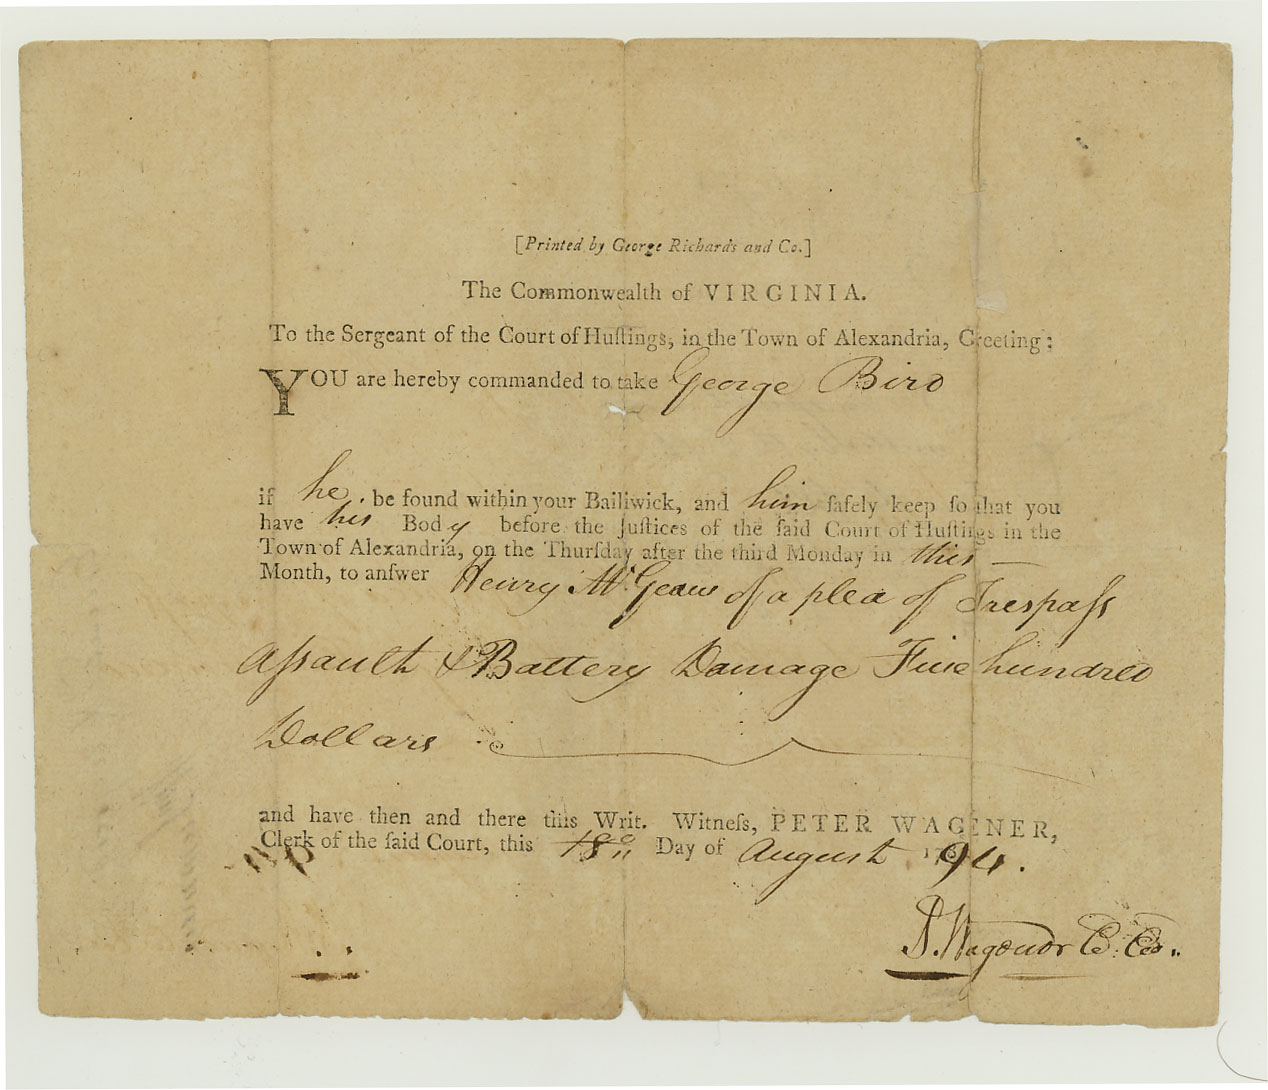 [Printed by George Richards and Co.]
The Commonwealth of VIRGINIA.
To the Sergeant of the Court of Huſtings, in the Town of Alexandria, Greeting:
YOU are hereby commanded to take George Bird
if he be found within your Bailiwick, and him ſafely keep ſo that you
have his Body before the Juſtices of the ſaid Court of Huſtings in the
Town of Alexandria, on the Thurſday after the third Monday in this —
Month, to anſwer Henry McGeaw of a plea of Treſpaſs
Aſsault & Battery Damage Five hundred
Dollars
and have then and there this Writ. Witneſs, PETER WAGENER,
Clerk of the ſaid Court, this 18 Day of August 1794.
P. Wagener